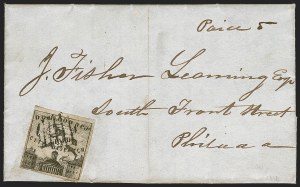 Paid 5
J. Fisher Leaming Esqr
South Front Street
Philada